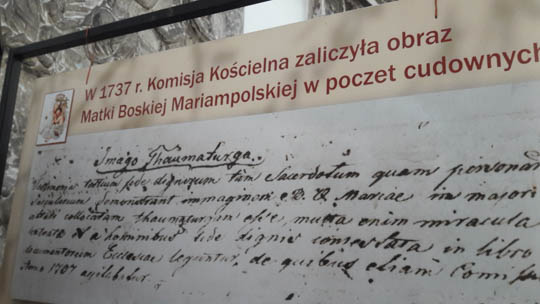 W 1737 r. Komisja Kościelna zaliczyła obraz
Matki Boskiej Mariampolskiej w poczet cudownych
Imago Thaumaturga.
fide dignorum tam Sacerdotum quam personar
demonstrant immaginem B. V. Mariae in majori
collocatam thaumaturgam esse, multa enim miracula
a hominibus fide dignis contestata in libro
documentorum Ecclesiae leguntur, de quibus etiam Comis
Anno 1737